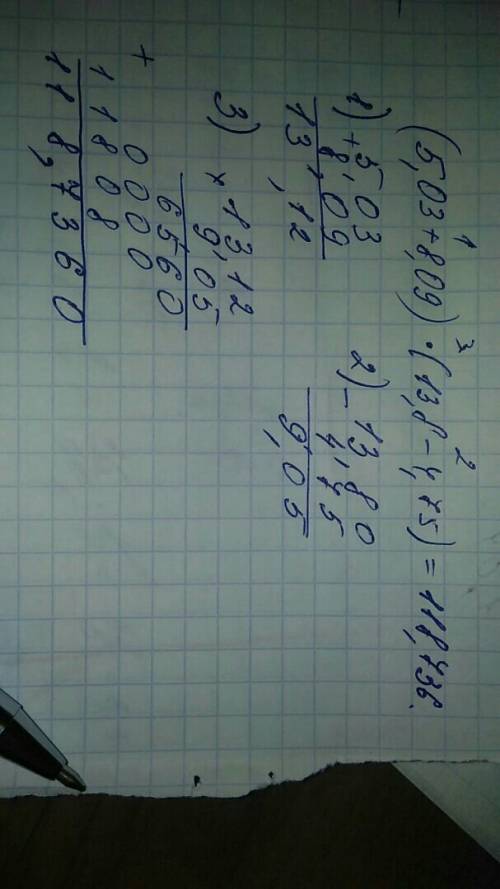 (5,03+8,09)·(13,8-4,75)=118,736.
1 3 2
1) +5,03
8,09
13,12
2) -13,80
4,75
9,05
3) ×13,12
9,05
6560
+ 0000
11808
118,7360